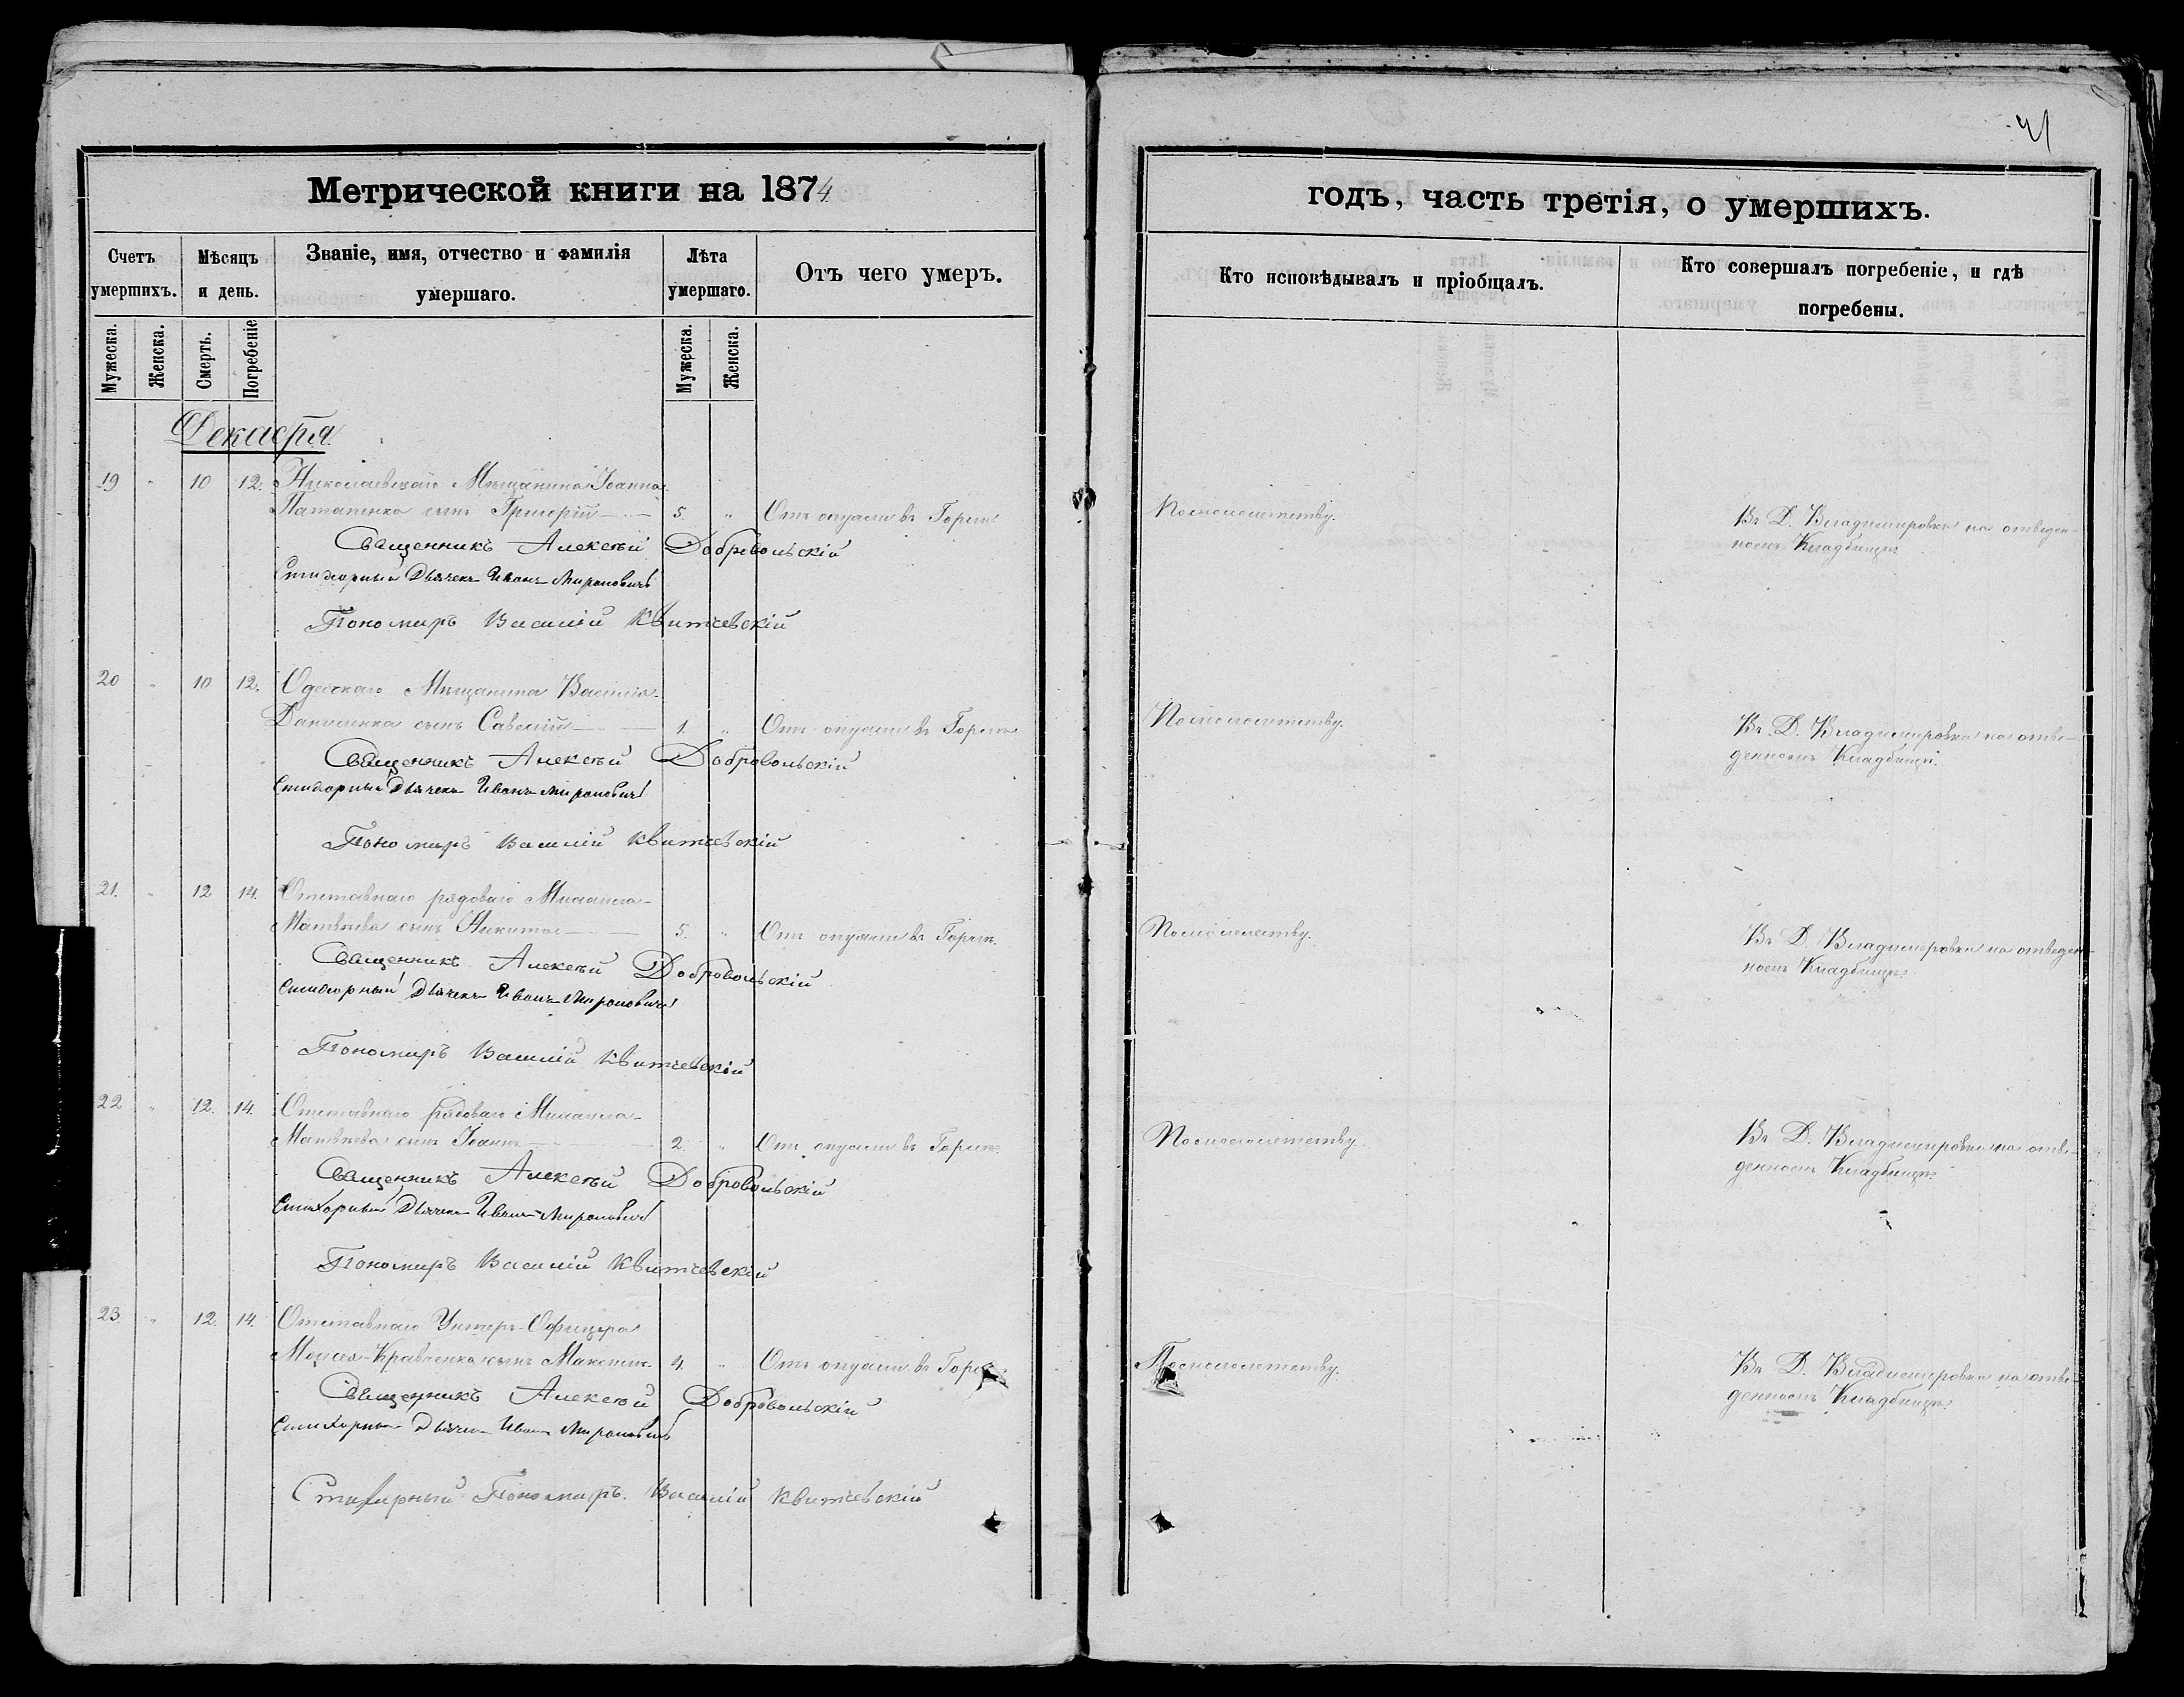 41
Метрической книги на 1874
годъ, часть третія, о умершихъ.
Счетъ умершихъ.
Мѣсяцъ и день.
Званіе, имя, отчество и фамилія умершаго.
Лѣта умершаго.
Отъ чего умеръ.
Кто исповѣдывалъ и пріобщалъ.
Кто совершалъ погребеніе, и гдѣ погребены.
Мужеска.
Женска.
Смерть.
Погребеніе
Мужеска.
Женска.
Декабря
19 " 10 12. Николаевскаго Мѣщанина Іоанна
Патапенка сынъ Григорій 5. " Отъ опухли въ Горлѣ
По малолетству.
Въ Д. Владимировки на отведен-
номъ Кладбищѣ
Священникъ Алексѣй Добровольскій
Стихарный Дьячекъ Иванъ Мироновичъ
Пономарь Василій Квитчевскій
20 " 10 12. Одесскаго Мѣщанина Василія
Даниленка сынъ Савелій 1. " Отъ опухли въ Горлѣ
По малолетству.
Въ Д. Владимировки на отве-
денномъ Кладбищѣ.
Священникъ Алексѣй Добровольскій
Стихарный Дьячекъ Иванъ Мироновичъ
Пономарь Василій Квитчевскій
21. " 12 14. Отставнаго рядоваго Михаила
Матвѣева сынъ Никита 5. " Отъ опухли въ Горлѣ.
По малолетству.
Въ Д. Владимировки на отведен-
номъ Кладбищѣ
Священникъ Алексѣй Добровольскій
Стихарный Дьячекъ Иванъ Мироновичъ
Пономарь Василій Квитчевскій
22 " 12. 14. Отставнаго рядоваго Михаила
Матвѣева сынъ Іоаннъ 2 " Отъ опухли въ Горлѣ.
По малолетству.
Въ Д. Владимировки на отве-
денномъ Кладбищѣ
Священникъ Алексѣй Добровольскій
Стихарный Дьячекъ Иванъ Мироновичъ
Пономарь Василій Квитчевскій
23 " 12. 14. Отставнаго Унтеръ-Офицера
Моисея Кравченка сынъ Максимъ 4. " Отъ опухли въ Горлѣ
По малолетству.
Въ Д. Владимировки на отве-
денномъ Кладбищѣ
Священникъ Алексѣй Добровольскій
Стихарный Дьячекъ Иванъ Мироновичъ
Стихарный Пономарь Василій Квитчевскій